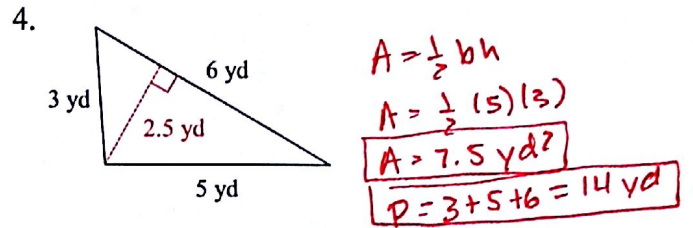 4.
6 yd
3 yd
2.5 yd
5 yd
A = ½ bh
A = ½ (5)(3)
A = 7.5 yd²
P = 3+5+6 = 14 yd